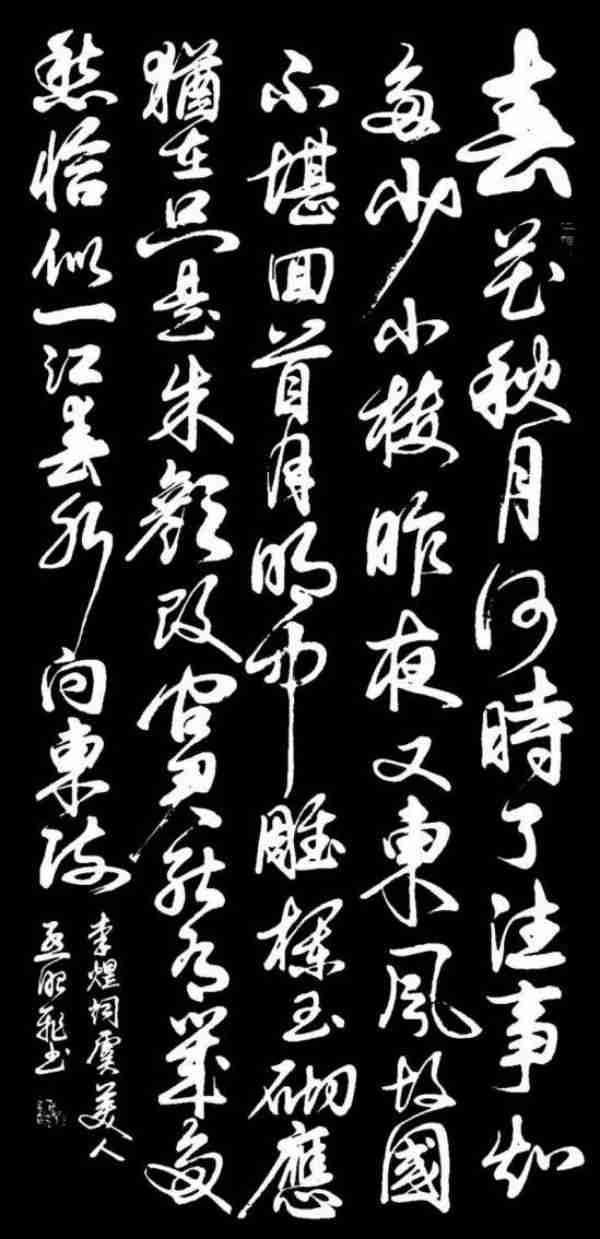 春花秋月何時了往事知
多少小樓昨夜又東風故國
不堪回首月明中雕欄玉砌應
猶在只是朱顏改問君能有幾多
愁恰似一江春水向東流
李煜詞虞美人
書